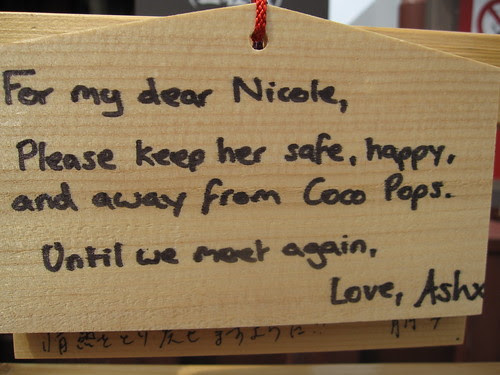 For my dear Nicole,
Please keep her safe, happy,
and away from Coco Pops.
Until we meet again,
Love, Ashx